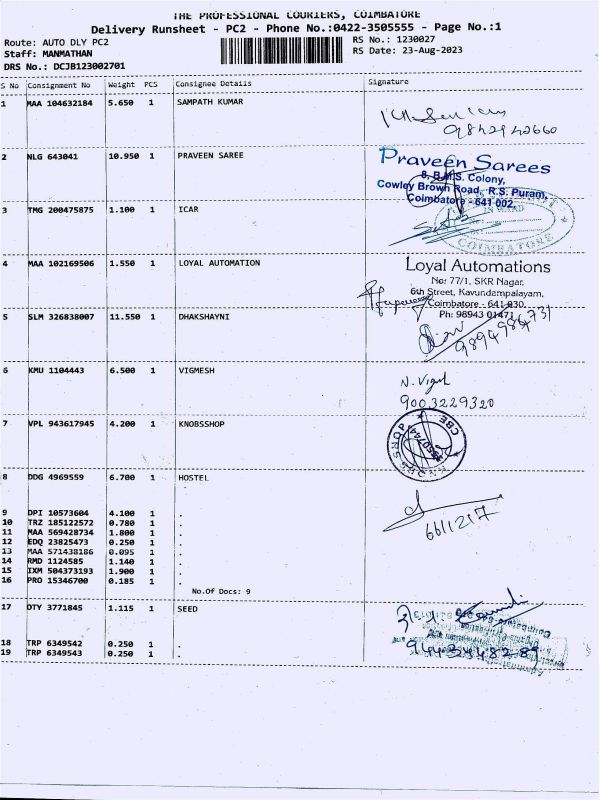 THE PROFESSIONAL COURIERS, COIMBATORE
Delivery Runsheet - PC2 - Phone No.:0422-3505555 - Page No.:1
Route: AUTO DLY PC2
RS No.: 1230027
Staff: MANMATHAN
RS Date: 23-Aug-2023
DRS No.: DCJB123002701
S No Consignment No Weight PCS Consignee Details Signature
1 MAA 104632184 5.650 1 SAMPATH KUMAR
9842942660
2 NLG 643041 10.950 1 PRAVEEN SAREE
Praveen Sarees
8, B.M.S. Colony,
Cowley Brown Road, R.S. Puram,
Coimbatore - 641 002.
3 TMG 200475875 1.100 1 ICAR
COIMBATORE
4 MAA 102169506 1.550 1 LOYAL AUTOMATION
Loyal Automations
No: 77/1, SKR Nagar,
6th Street, Kavundampalayam,
Coimbatore - 641 030.
Ph: 98943 01471
5 SLM 326838007 11.550 1 DHAKSHAYNI
9894984731
6 KMU 1104443 6.500 1 VIGMESH
N. Vigh
9003229320
7 VPL 943617945 4.200 1 KNOBSSHOP
CBE
8 DDG 4969559 6.700 1 HOSTEL
6611217
9 DPI 10573604 4.100 1 .
10 TRZ 185122572 0.780 1 .
11 MAA 569428734 1.800 1 .
12 EDQ 23825473 0.250 1 .
13 MAA 571438186 0.095 1 .
14 RMD 1124585 1.140 1 .
15 IXM 504373193 1.900 1 .
16 PRO 15346700 0.185 1 .
No.Of Docs: 9
17 OTY 3771845 1.115 1 SEED
18 TRP 6349542 0.250 1 .
19 TRP 6349543 0.250 1 .